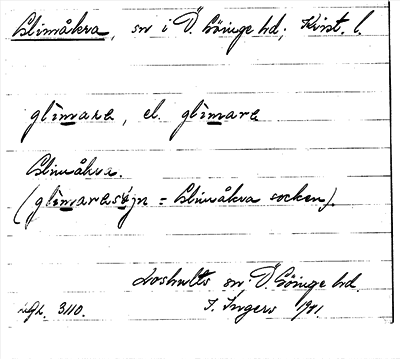 Glimåkra, sn i Ö. Göinge hd; Krist. l.
glìmara, el. glìmara
Glimåkra.
(glìmarasójn = Glimåkra socken).
Loshults sn. Ö. Göinge hd.
3110. I. Ingers 1941.